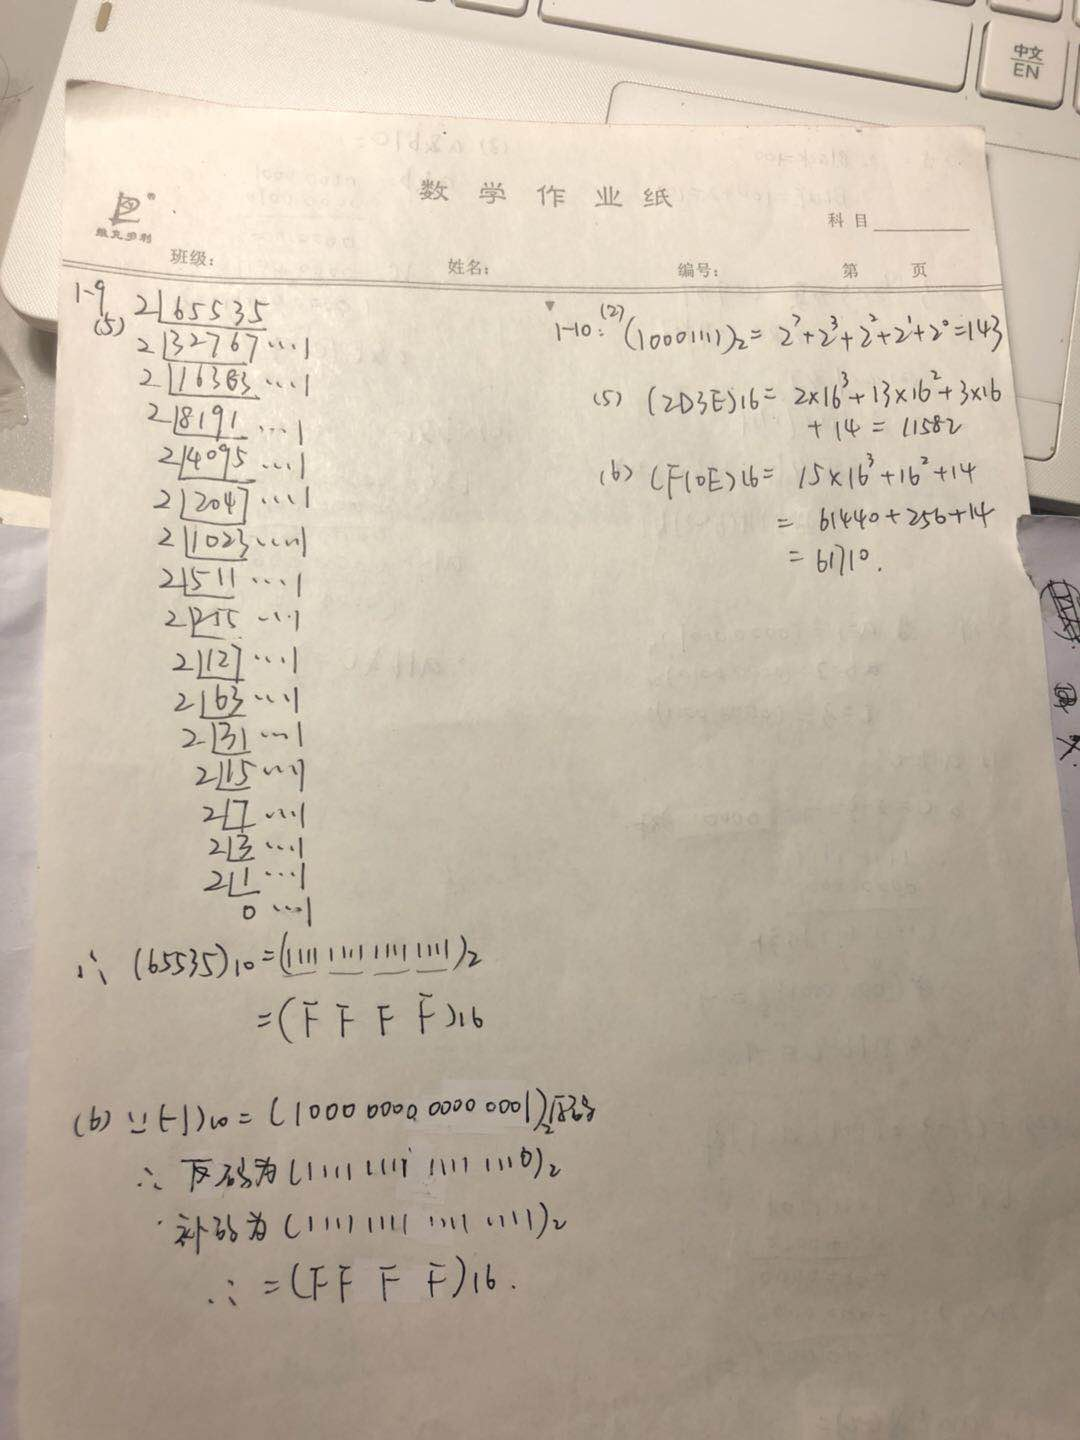 中文
EN
数学作业纸
科目
维克多利
班级:
姓名:
编号:
第 页
1-9
(5) 2|65535
2|32767 …1
2|16383 …1
2|8191 …1
2|4095 …1
2|2047 …1
2|1023 …1
2|511 …1
2|255 …1
2|127 …1
2|63 …1
2|31 …1
2|15 …1
2|7 …1
2|3 …1
2|1 …1
0 …1
∴ (65535)10=(1111 1111 1111 1111)2
=(F F F F)16
(6) ∵(-1)10=(1000 0000 0000 0001)2原码
∴ 反码为(1111 1111 1111 1110)2
补码为(1111 1111 1111 1111)2
∴ =(FF F F)16.
1-10: (2) (10001111)2= 2⁷+2³+2²+2¹+2⁰=143
(5) (2D3E)16= 2×16³+13×16²+3×16
+14 = 11582
(6) (F10E)16= 15×16³+16²+14
= 61440+256+14
= 61710.